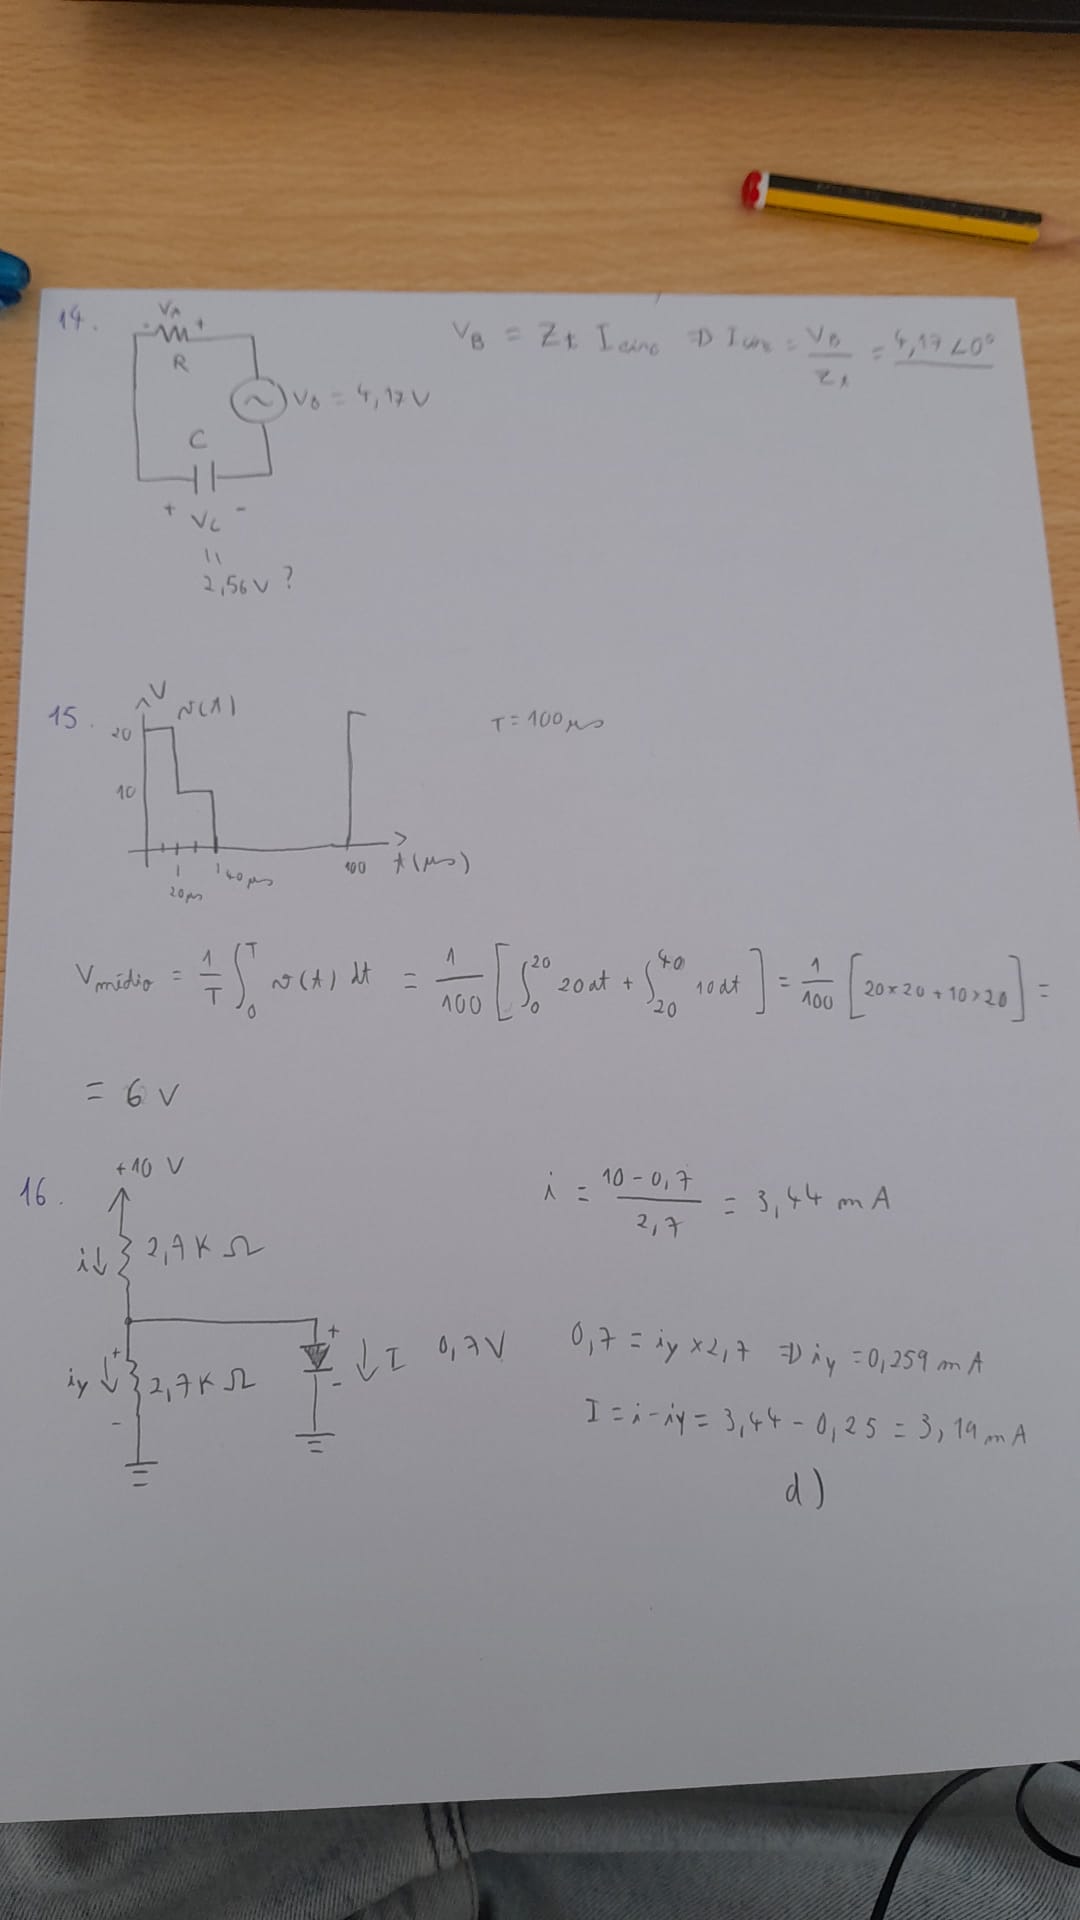 14.
VA
- +
R
VB = 4,17 V
C
+ VC -
||
2,56 V ?
VB = Zt Icirc => Icirc = VB / Zt = 4,17 ∠0°
15.
V
v(t)
20
10
20μs
40μs
100
t(μs)
T = 100 μs
Vmédio = 1/T ∫₀ᵀ v(t) dt = 1/100 [ ∫₀²⁰ 20 dt + ∫₂₀⁴⁰ 10 dt ] = 1/100 [ 20×20 + 10×20 ] =
= 6 V
16.
+10 V
i↓ 2,7 K Ω
iy ↓ + - 2,7 K Ω
+ - ↓ I 0,7 V
i = (10 - 0,7) / 2,7 = 3,44 mA
0,7 = iy × 2,7 => iy = 0,259 mA
I = i - iy = 3,44 - 0,25 = 3,19 mA
d)